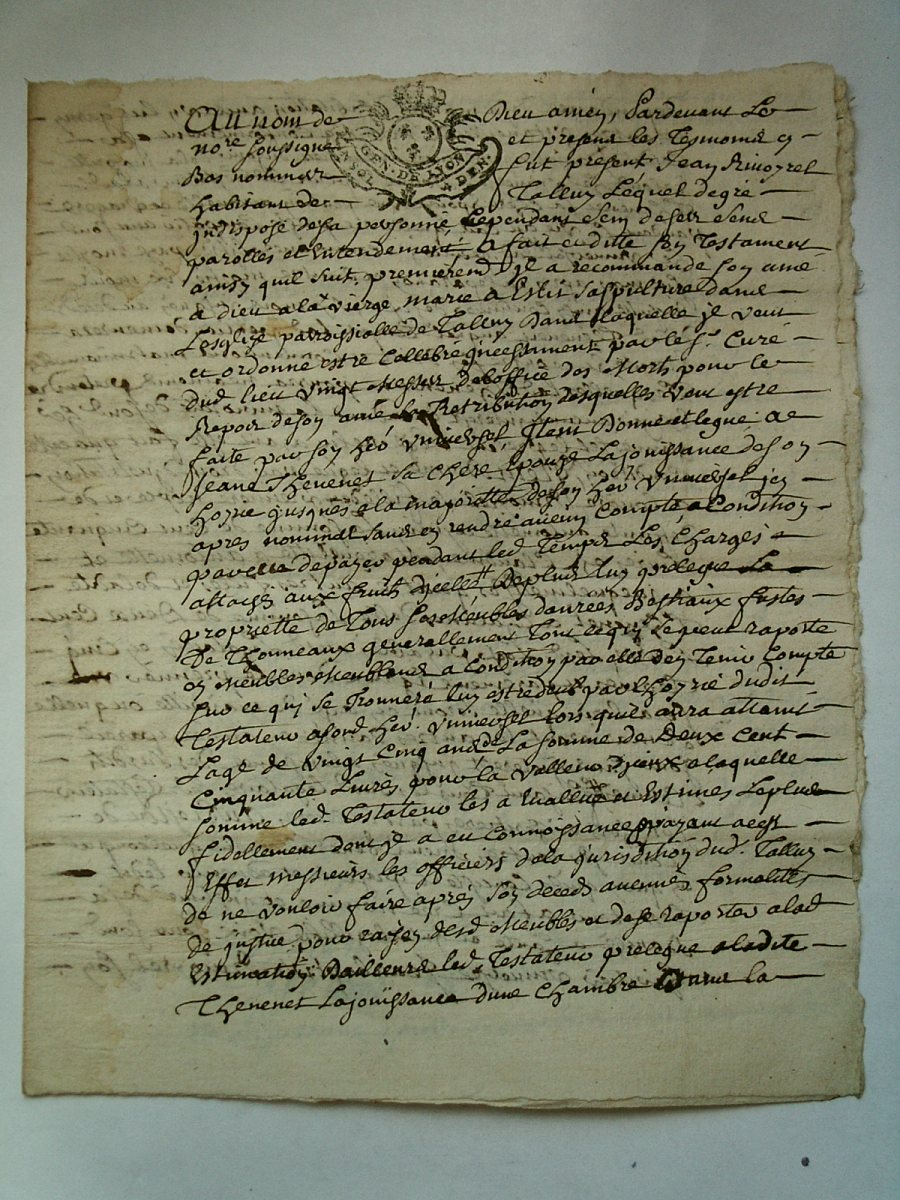 Au nom de Dieu amen, Pardevant Le
no.re soussigné et presens les Tesmoins cy
Bas nommez fut present Jean Rivoyret
habitant de Talluy Lequel degré
GEN. DE LYON
indisposé de sa personne, Cependant sein de ses sens
parolles et Entendement a fait et ditté son Testament
ainsy quil suit, premierem.t Il a recommandé son ame
a dieu a la vierge marie a Eslis sa sepulture dans
Lesglize parroissialle de Talluy Dans laquelle je veut
et ordonne estre Cellebré incessiment par le s.r Curé
dud lieu vingt Messes de loffice des Morts pour le
Repos de son ame la Retribution desquelles veut estre
faite par son heo vniversel Item Donne et legue a
Jeane Thenenet sa Chere Epouze La jouissance de son
hoyrie jusques a la majorité de son heo vniversel icy
apres nommé sans en rendre aucun Compte a Condition
par elle de payer pendant led Temps Les Charges
attachez aux fruits dicelle De plus luy prelegue La
proprietté de Tous ses Meubles danrées Bestiaux fustes
De Thonneaux generallement Tout ce quy Se peut raporté
en Meubles Meublans a Condition par elle den Tenir Compte
sur ce qui se Trouvera luy estre deub par lhoyrie dudit
Testateur a sond. heo. vniversel lors quil aura attaint
Lage de vingt Cinq ans de La somme de Deux Cent
Cinquante Livres pour la valleur diceux a laquelle
somme led. Testateur les a Evallué et Estimes Le plus
fidellement dont Il a eu Connoissance priant a cest
Effet Messieurs les officiers de la jurisdition dud. Talluy
de ne vouloir faire apres son deceds aucunes formalités
de justice pour raison desd Meubles et de se raporter a lad
Estimation Dailleurs led. Testateur prelegue a ladite
Thenenet La jouissance dune Chambre Dans la